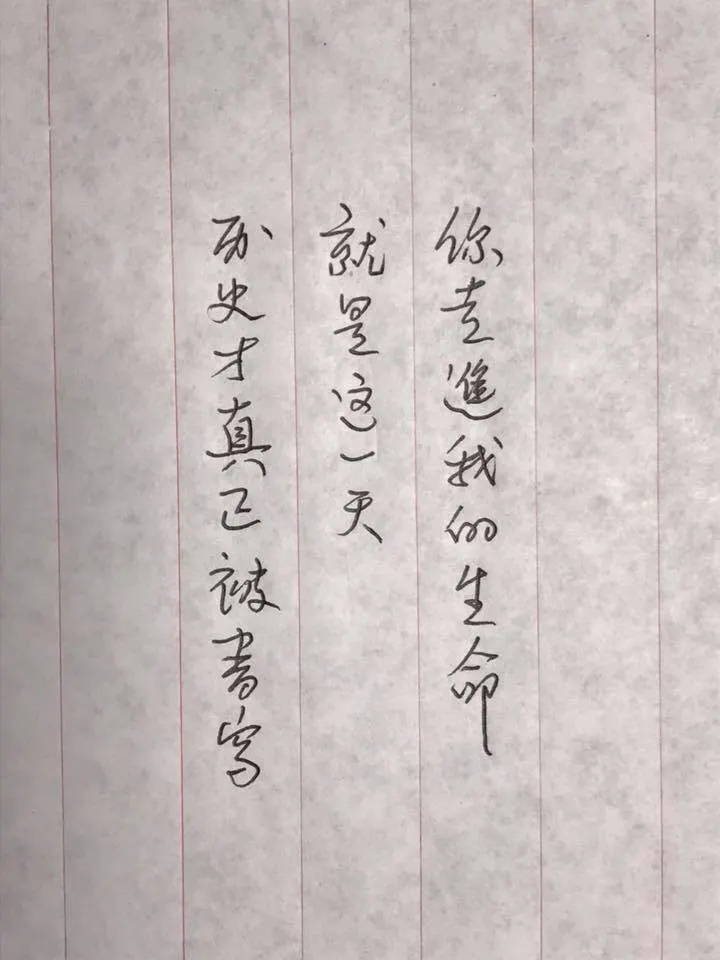 你走進我的生命
就是这一天
历史才真正被書写